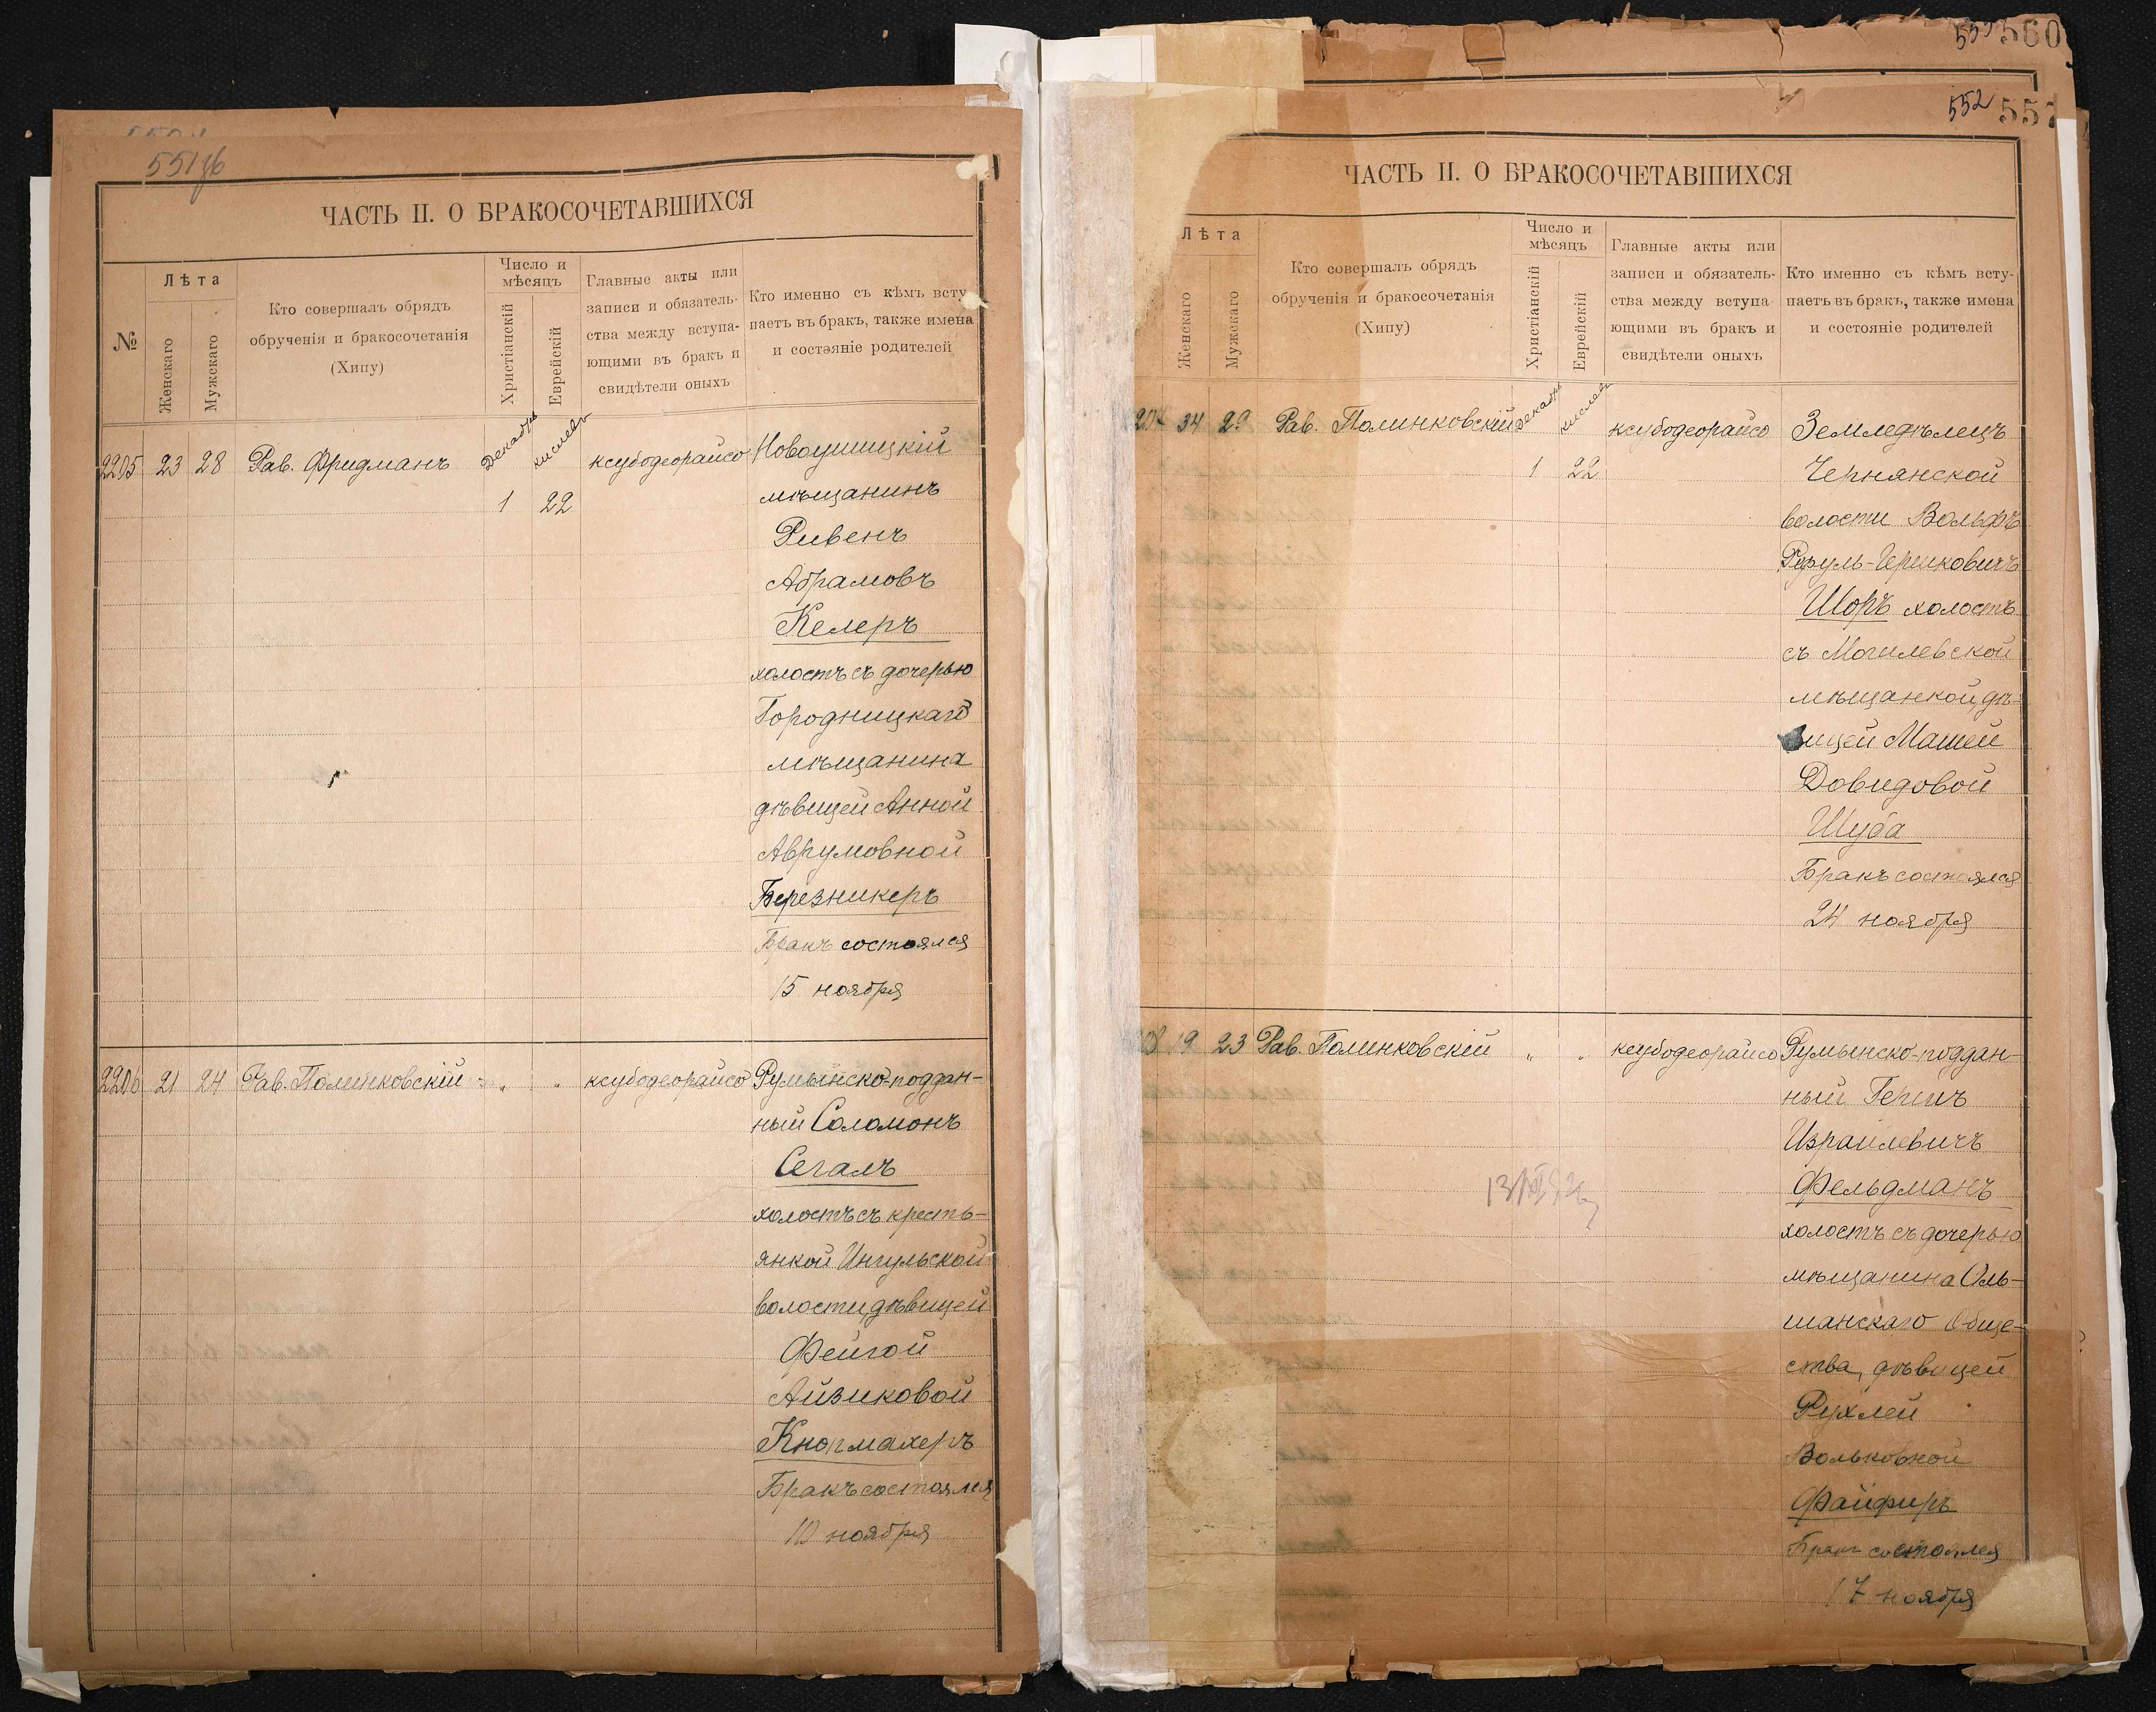 551 об
ЧАСТЬ II. О БРАКОСОЧЕТАВШИХСЯ
№
Лѣта
Женскаго
Мужскаго
Кто совершалъ обрядъ
обрученія и бракосочетанія
(Хипу)
Число и
мѣсяцъ
Христіанскій
Еврейскій
Главные акты или
записи и обязатель-
ства между вступа-
ющими въ бракъ и
свидѣтели оныхъ
Кто именно съ кѣмъ всту
паетъ въ бракъ, также имена
и состояніе родителей
2205 23 28 Рав. Фридманъ Декабрь кислевъ ксубодеорайсо Новоушицкій
1 22 мѣщанинъ
Ривенъ
Абрамовъ
Келеръ
холостъ съ дочерью
Городницкаго
мѣщанина
дѣвицей Анной
Аврумовной
Березникеръ
Бракъ состоялся
15 ноября
2206 21 24 Рав. Полинковскій „ „ ксубодеорайсо Румынско-поддан-
ный Соломонъ
Сегалъ
холостъ съ кресть-
янкой Ингульской
волости, дѣвицей
Фейгой
Айзиковой
Кнопмахеръ
Бракъ состоялся
10 ноября
560
552
ЧАСТЬ II. О БРАКОСОЧЕТАВШИХСЯ
Лѣта
Женскаго
Мужскаго
Кто совершалъ обрядъ
обрученія и бракосочетанія
(Хипу)
Число и
мѣсяцъ
Христіанскій
Еврейскій
Главные акты или
записи и обязатель-
ства между вступа
ющими въ бракъ и
свидѣтели оныхъ
Кто именно съ кѣмъ всту-
паетъ въ бракъ, также имена
и состояніе родителей
34 29 Рав. Полинковскій Декабрь кислевъ ксубодеорайсо Земледѣлецъ
1 22 Чернянской
волости Вольфъ
Шоръ холостъ
съ Могилевской
мѣщанкой, дѣ-
вицей Машей
Довидовой
Шуба
Бракъ состоялся
24 ноября
19 23 Рав. Полинковскій „ „ ксубодеорайсо Румынско-поддан-
ный Гершъ
Израилевичъ
Фельдманъ
холостъ съ дочерью
мѣщанина Оль-
шанскаго Обще-
ства, дѣвицей
Рухлей
Вольковной
Файфиръ
Бракъ состоялся
17 ноября